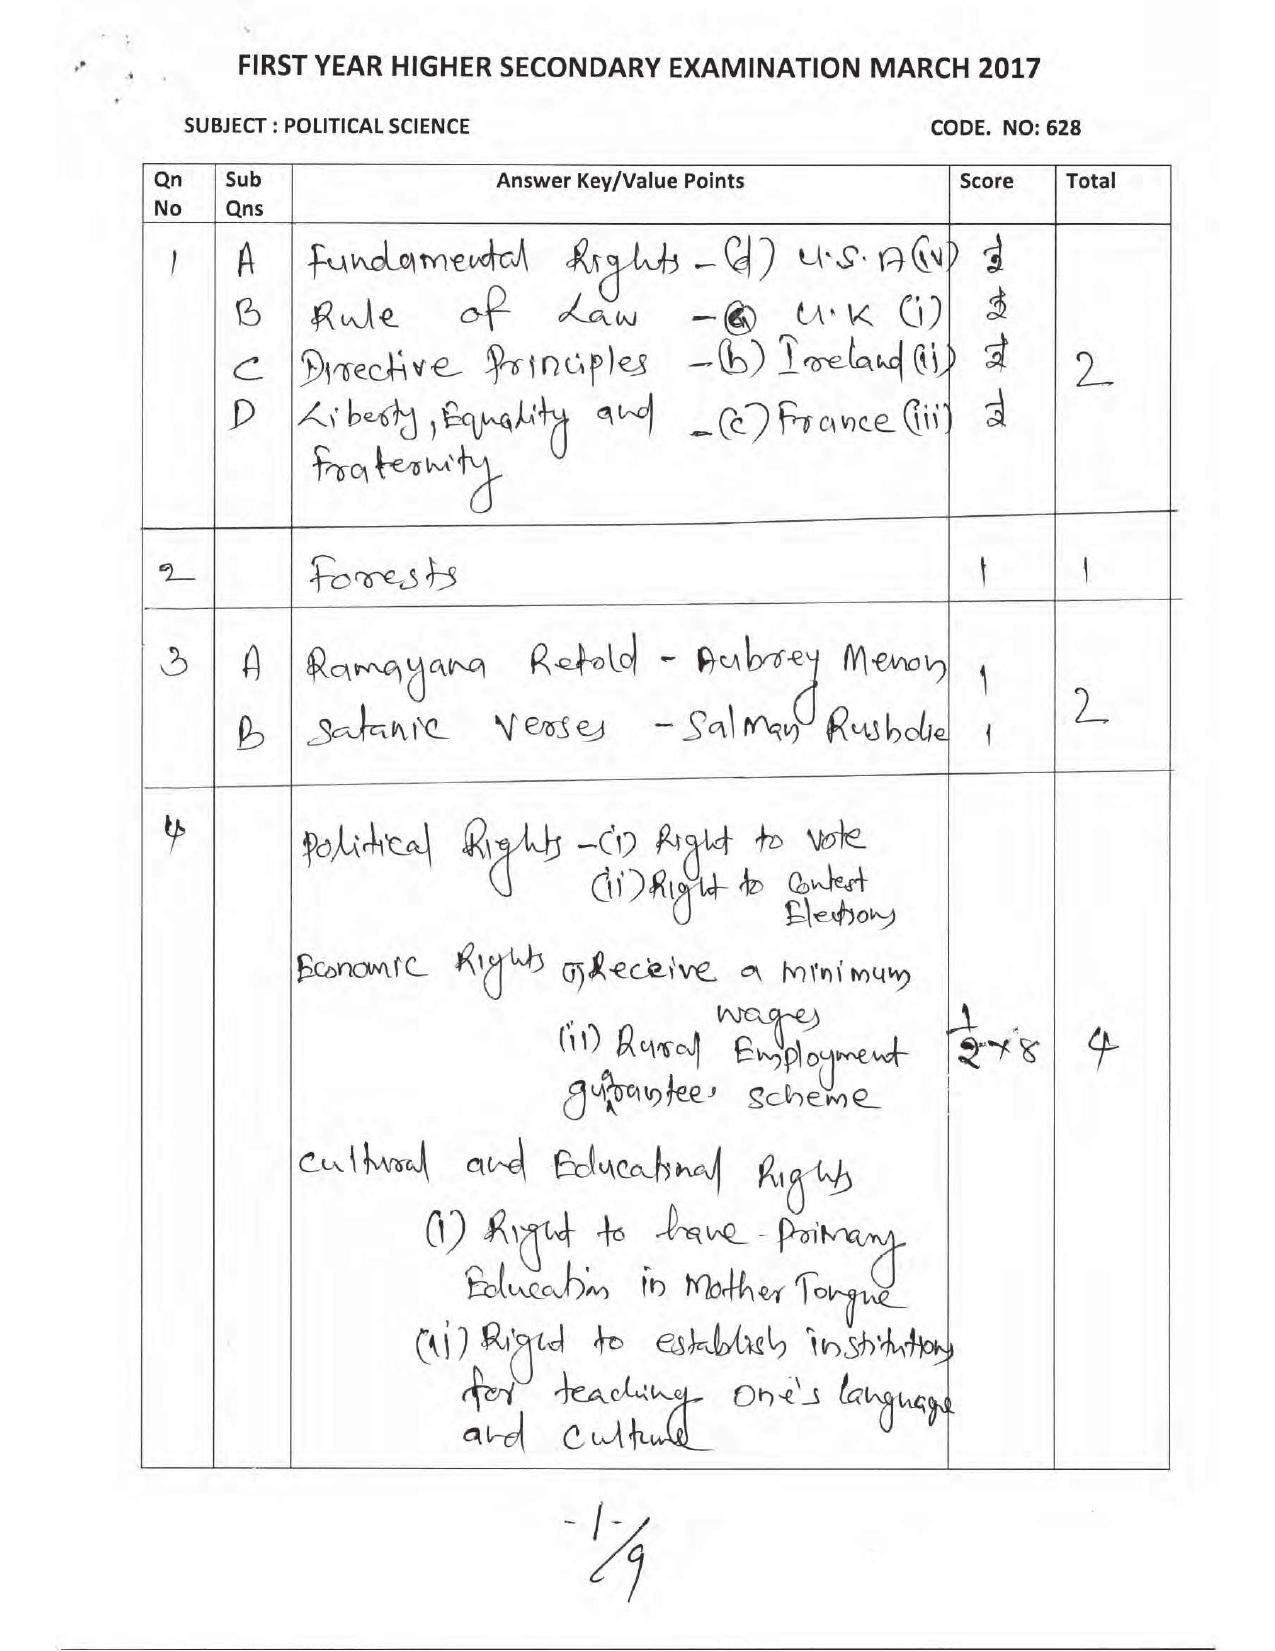 FIRST YEAR HIGHER SECONDARY EXAMINATION MARCH 2017
SUBJECT : POLITICAL SCIENCE CODE. NO: 628
Qn No Sub Qns Answer Key/Value Points Score Total
1 A Fundamental Rights - (d) U.S.A (iv) ½
B Rule of Law - (a) U.K (i) ½
C Directive Principles - (b) Ireland (ii) ½ 2
D Liberty, Equality and - (c) France (iii) ½
Fraternity
2 Forests 1 1
3 A Ramayana Retold - Aubrey Menon 1
2
B Satanic Verses - Salman Rushdie 1
4 Political Rights - (i) Right to Vote
(ii) Right to Contest
Elections
Economic Rights (i) Receive a minimum
wages
(ii) Rural Employment ½ × 8 4
guarantee scheme
Cultural and Educational Rights
(i) Right to have - Primary
Education in Mother Tongue
(ii) Right to establish institutions
for teaching one's language
and culture
-1-
/9